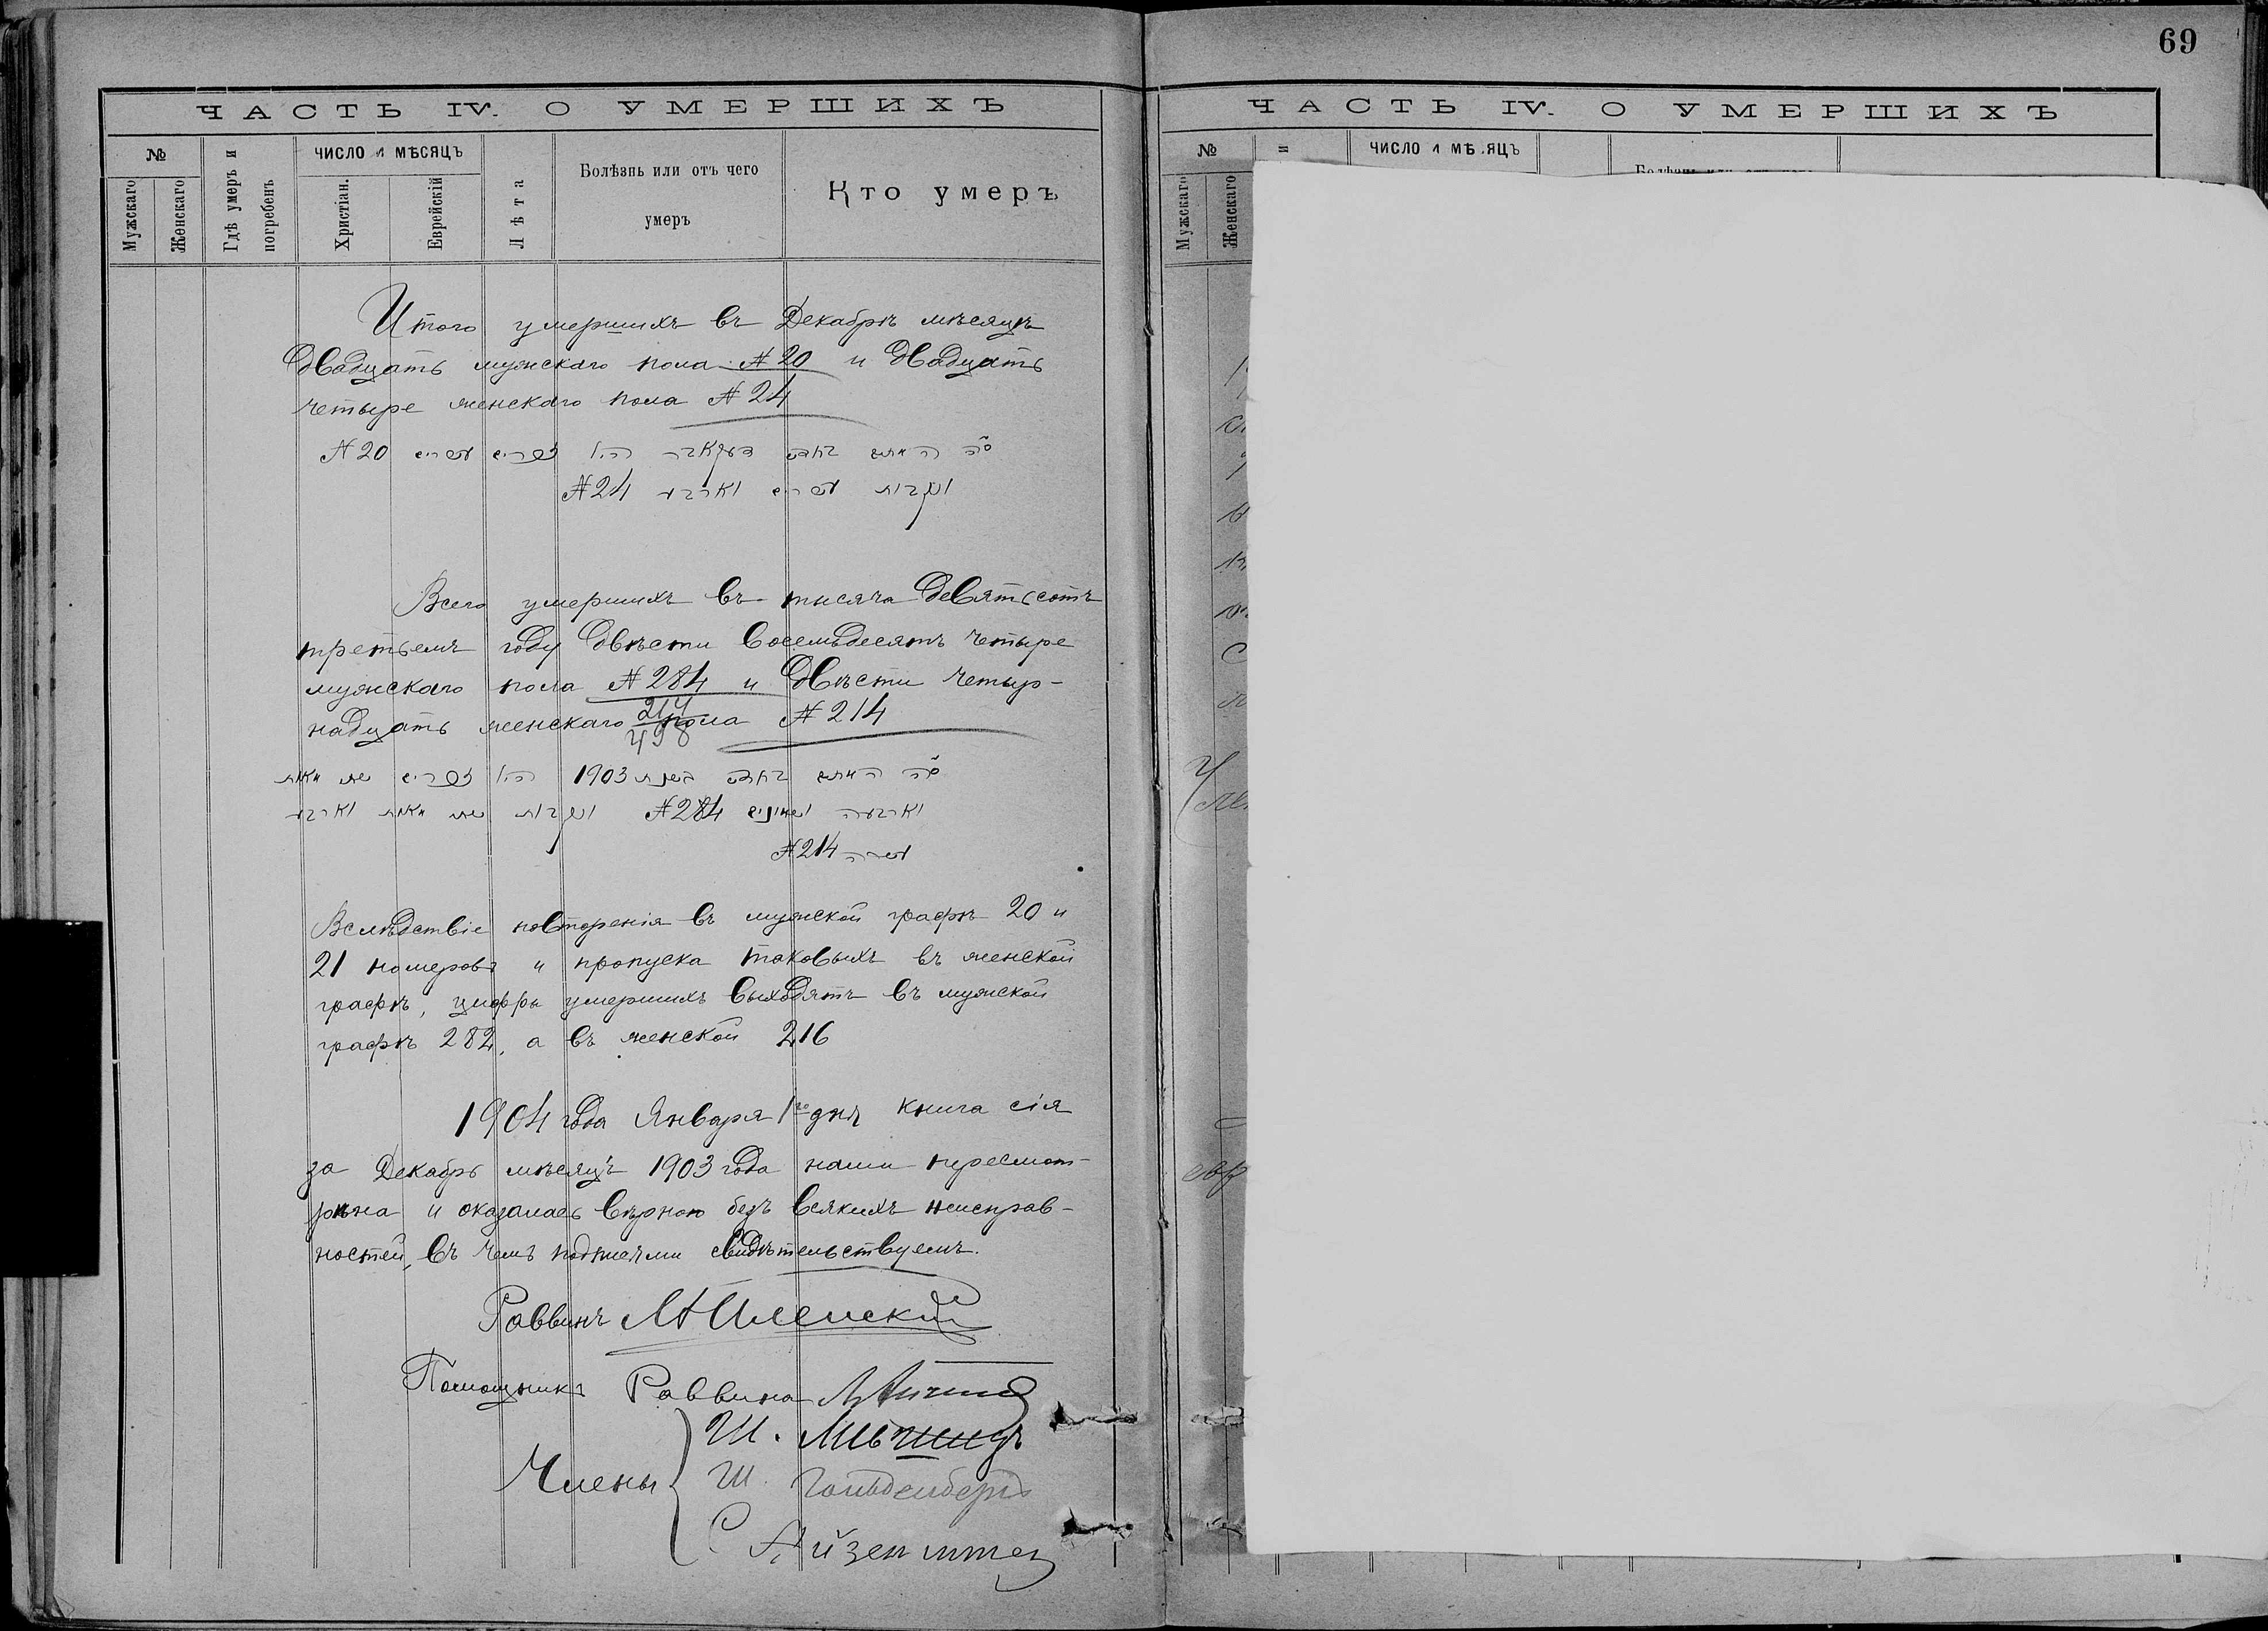 69
ЧАСТЬ IV. О УМЕРШИХЪ
№
Мужскаго
Женскаго
Гдѣ умеръ и погребенъ
ЧИСЛО И МѢСЯЦЪ
Христіан.
Еврейскій
Лѣта
Болѣзнь или отъ чего
умеръ
Кто умеръ
Итого умершихъ въ Декабрѣ мѣсяцѣ
двадцать мужскаго пола № 20 и двадцать
четыре женскаго пола № 24
זכרים עשרים № 20
ונקבות עשרים וארבע № 24
Всего умершихъ въ тысяча девятьсотъ
третьемъ году двѣсти восемьдесятъ четыре
мужскаго пола № 284 и двѣсти четыр-
надцать женскаго пола № 214
214
498
1903 זכרים מאת
וארבעה ושמונים № 284 ונקבות מאת וארבע
עשרה № 214
Вслѣдствіе повторенія въ мужской графѣ 20 и
21 номеровъ и пропуска таковыхъ въ женской
графѣ, цифры умершихъ выходятъ въ мужской
графѣ 282, а въ женской 216
1904 года Января 1го дня книга сія
за Декабрь мѣсяцъ 1903 года нами пересмот-
рѣна и оказалась вѣрною безъ всякихъ неисправ-
ностей, въ чемъ подписями свидѣтельствуемъ.
Раввинъ
Помощникъ Раввина
Члены
Ш.
Ш. Гольденбергъ
С Айзенштез
ЧАСТЬ IV. О УМЕРШИХЪ
№
Мужскаго
Женскаго
ЧИСЛО И МѢСЯЦЪ